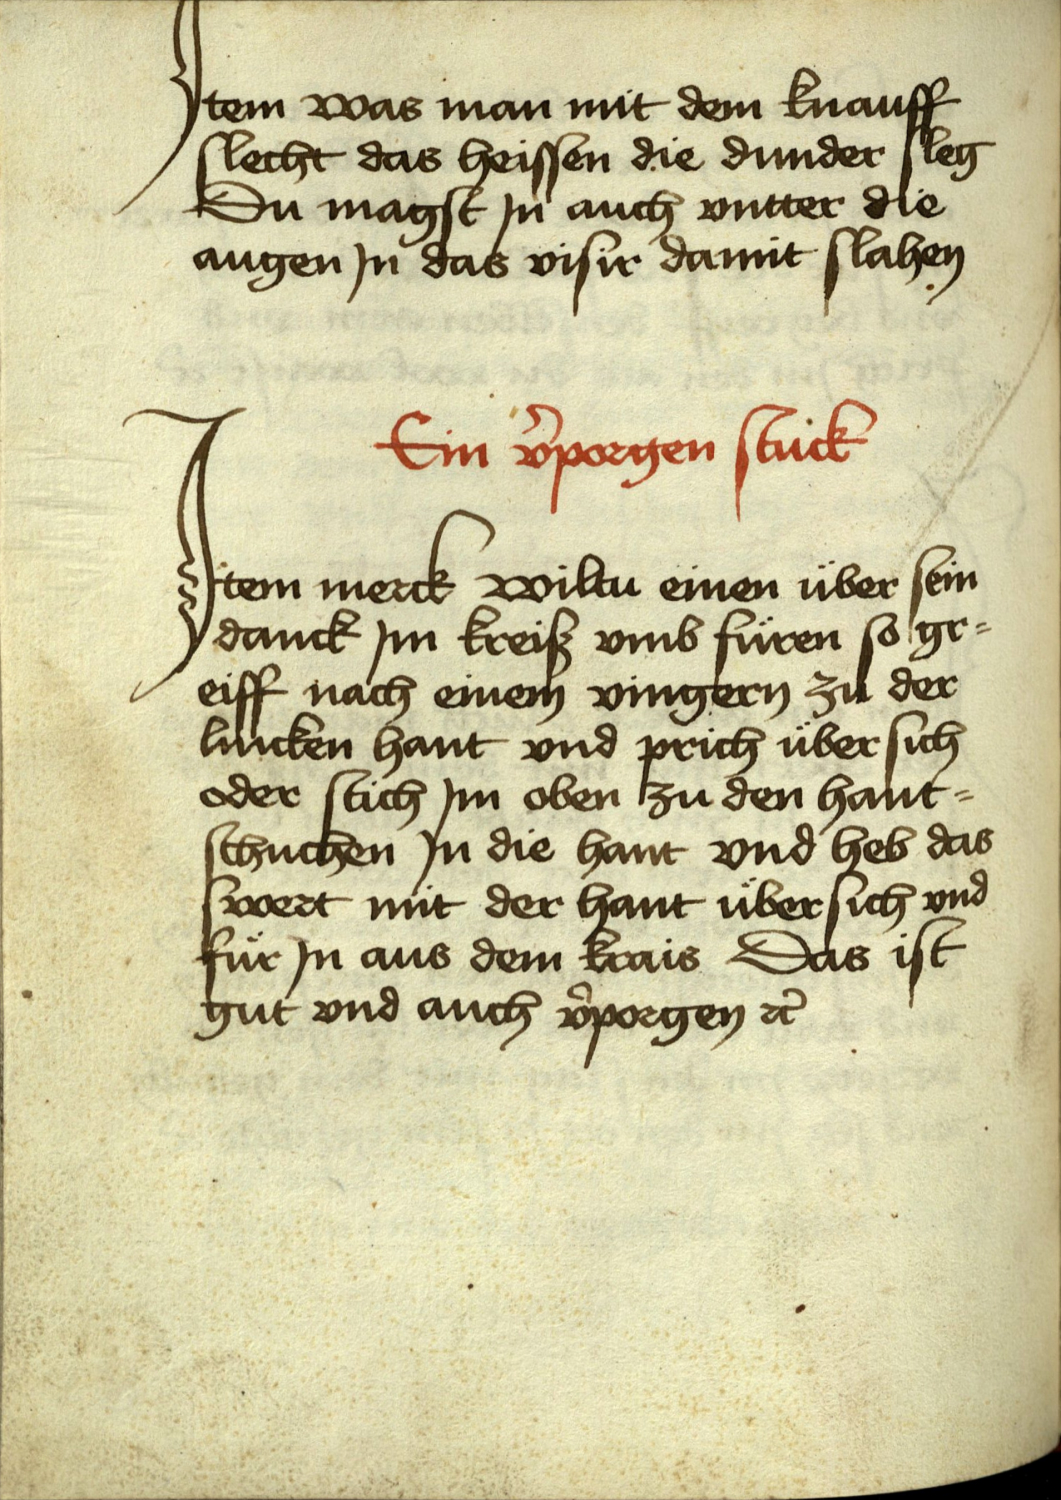 Jtem was man mit dem knauff
slecht das heissen die dunder sleg
Du magst Jn auch vntter die
augen Jn das visir damit slahen
Ein v̾porgen stuck
Jtem merck wiltu einen über sein
danck Jm kreiß vmb füren so gr=
eiff nach einem vingern zu der
lincken hant vnd prich über sich
oder stich Jm oben zu den hant=
schuchen Jn die hant vnd heb das
swert mit der hant über sich vnd
für Jn aus dem krais Das ist
gut vnd auch v̾porgen ꝛc̾